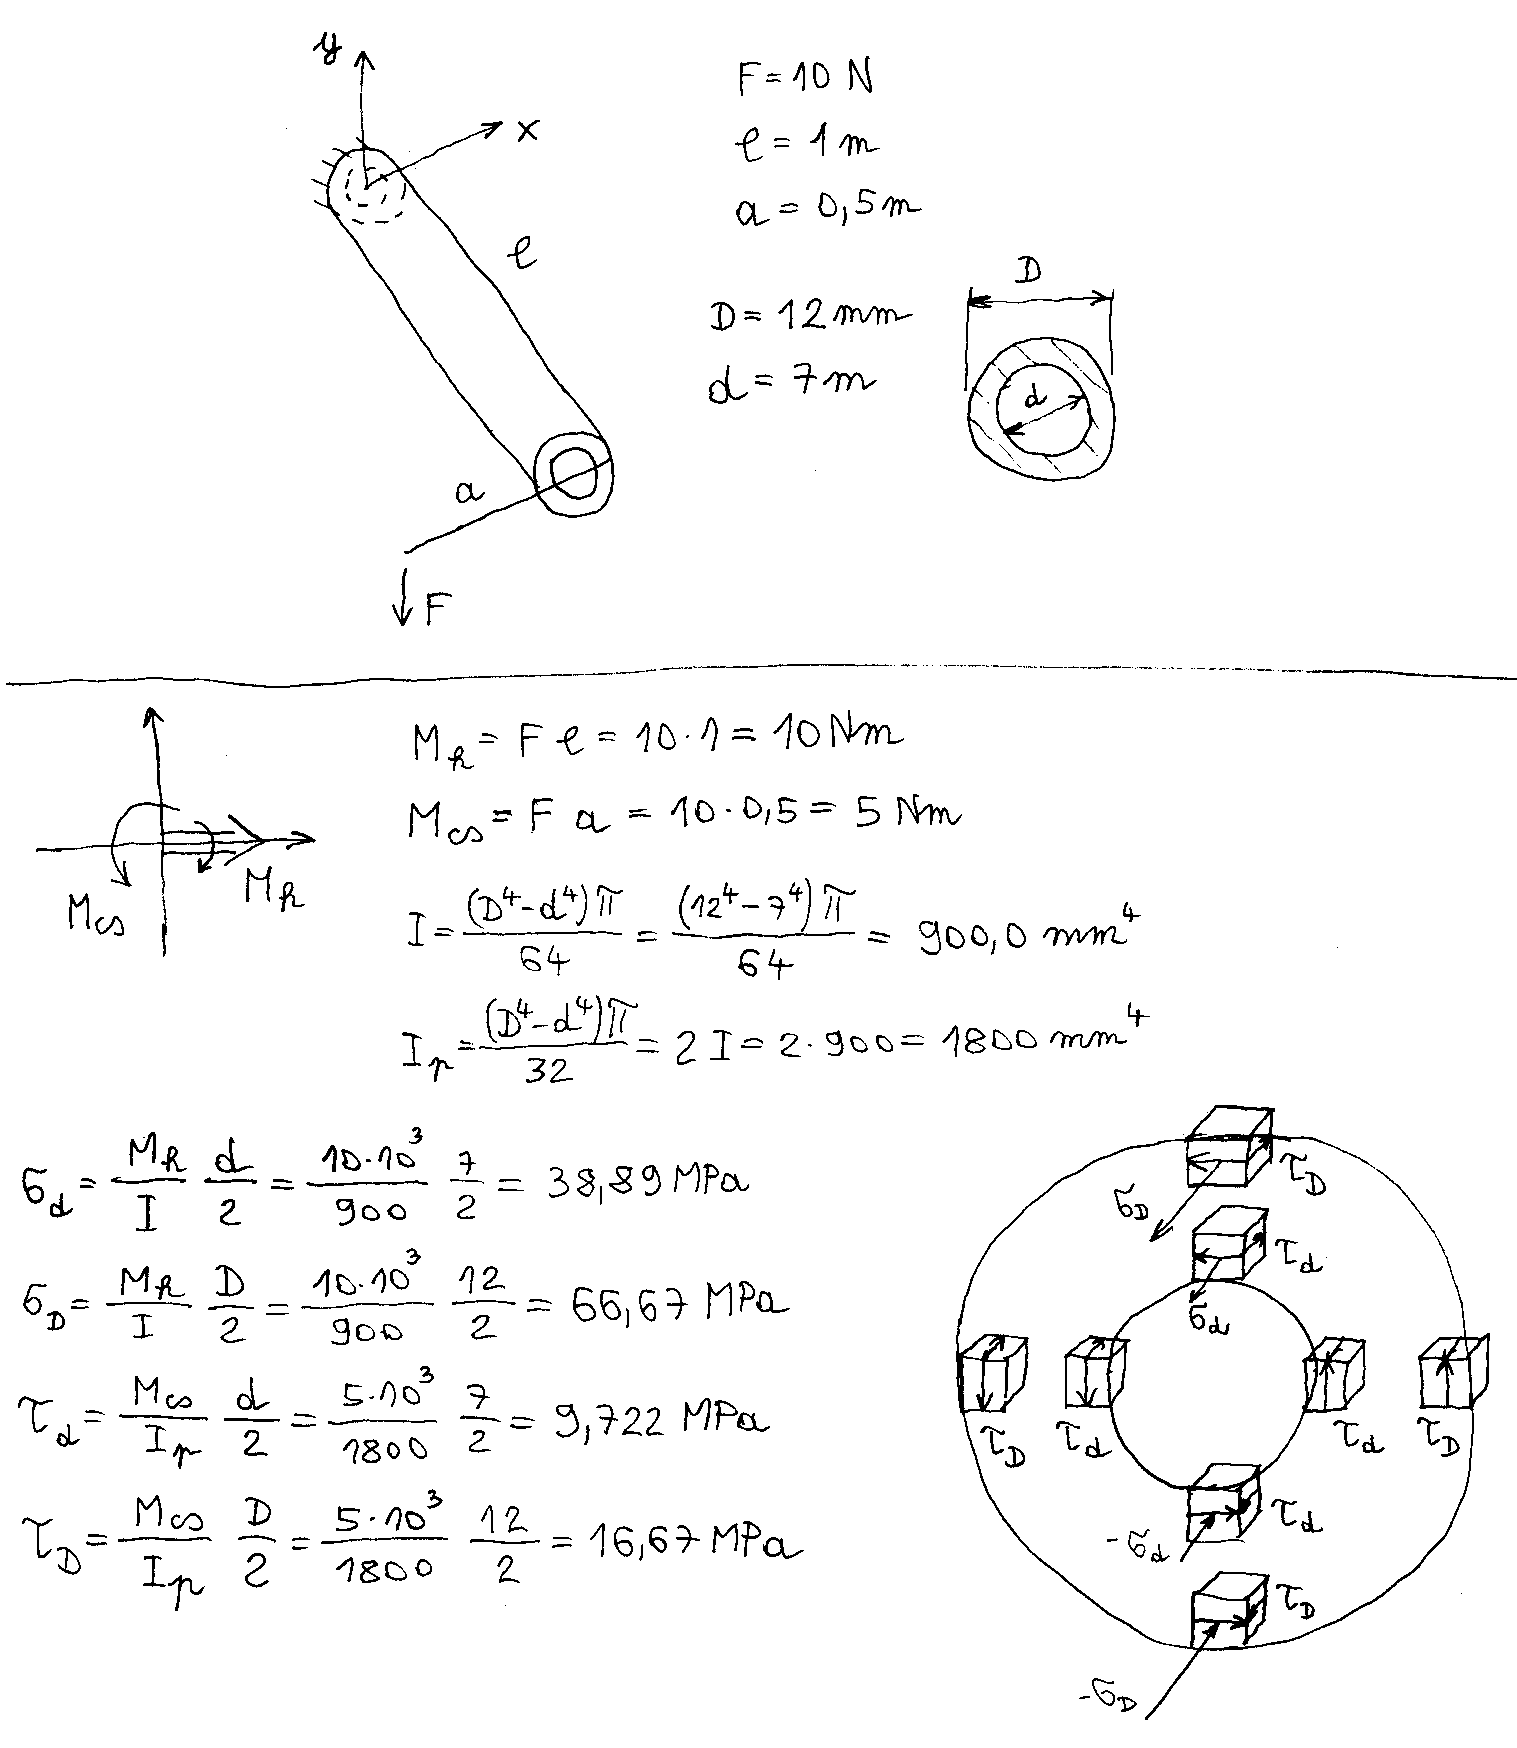 y
x
F = 10 N
ℓ = 1 m
a = 0,5 m
D = 12 mm
d = 7 m
ℓ
D
d
a
F
M_k = F ℓ = 10 · 1 = 10 Nm
M_cs = F a = 10 · 0,5 = 5 Nm
M_cs
M_k
I = (D⁴ - d⁴) π / 64 = (12⁴ - 7⁴) π / 64 = 900,0 mm⁴
I_p = (D⁴ - d⁴) π / 32 = 2 I = 2 · 900 = 1800 mm⁴
σ_d = M_k / I d / 2 = 10 · 10³ / 900 7 / 2 = 38,89 MPa
σ_D = M_k / I D / 2 = 10 · 10³ / 900 12 / 2 = 66,67 MPa
τ_d = M_cs / I_p d / 2 = 5 · 10³ / 1800 7 / 2 = 9,722 MPa
τ_D = M_cs / I_p D / 2 = 5 · 10³ / 1800 12 / 2 = 16,67 MPa
τ_D
σ_D
τ_d
σ_d
τ_D τ_d τ_d τ_D
τ_d
-σ_d
τ_D
-σ_D